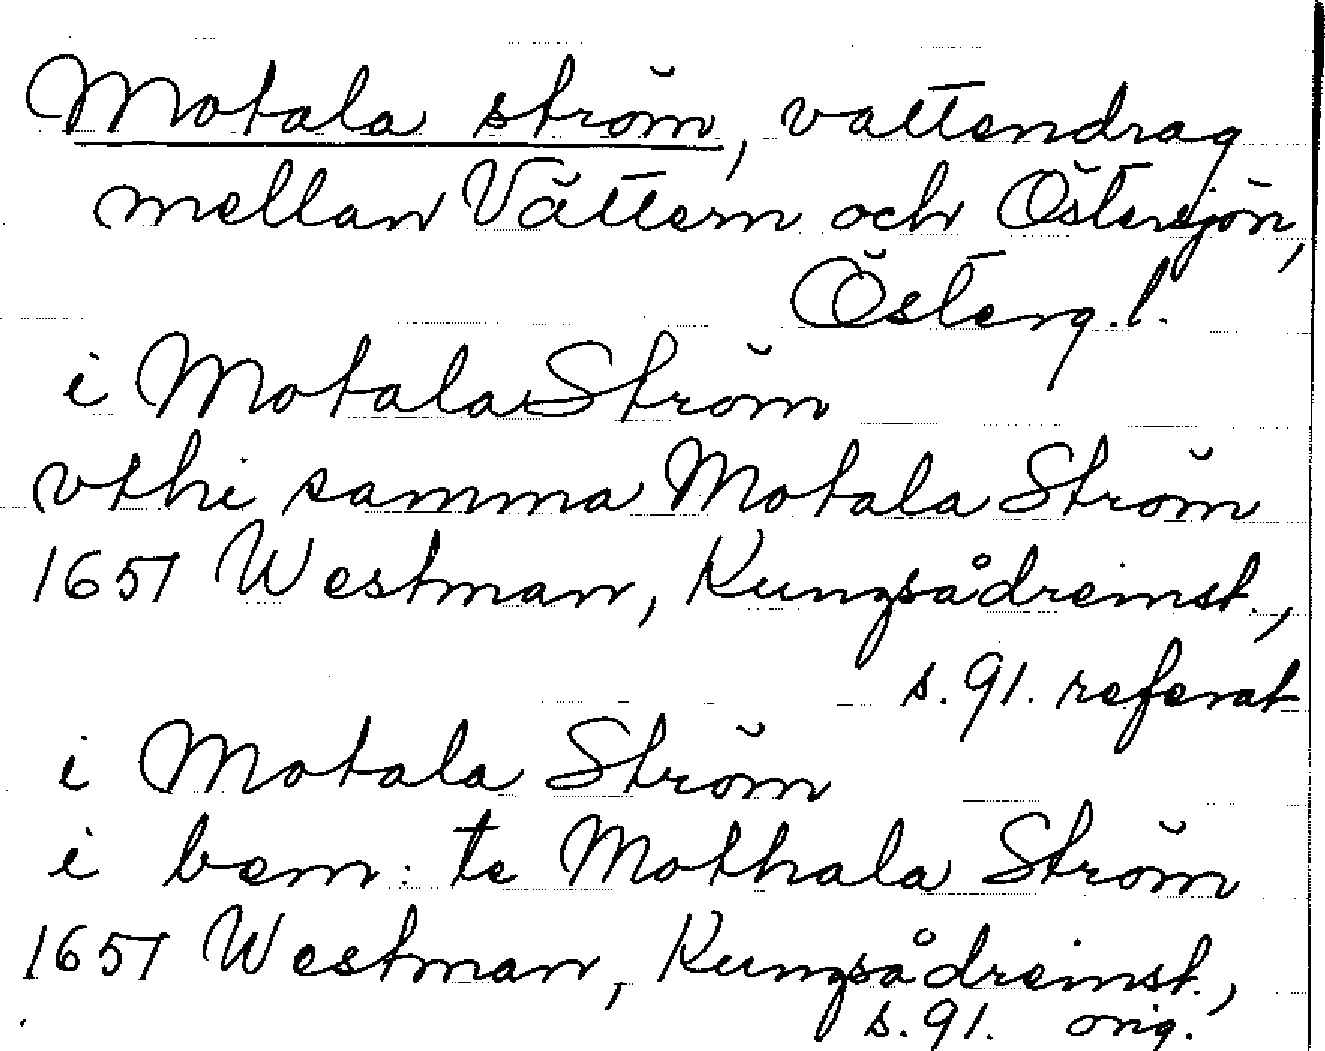 Motala ström, vattendrag
mellan Vättern och Östersjön,
Österg.l.
i Motala Ström
vthi samma Motala Ström
1651 Westman, Kungsådreinst.,
s. 91. referat
i Motala Ström
i bem: te Mothala Ström
1651 Westman, Kungsådreinst.,
s. 91. orig.